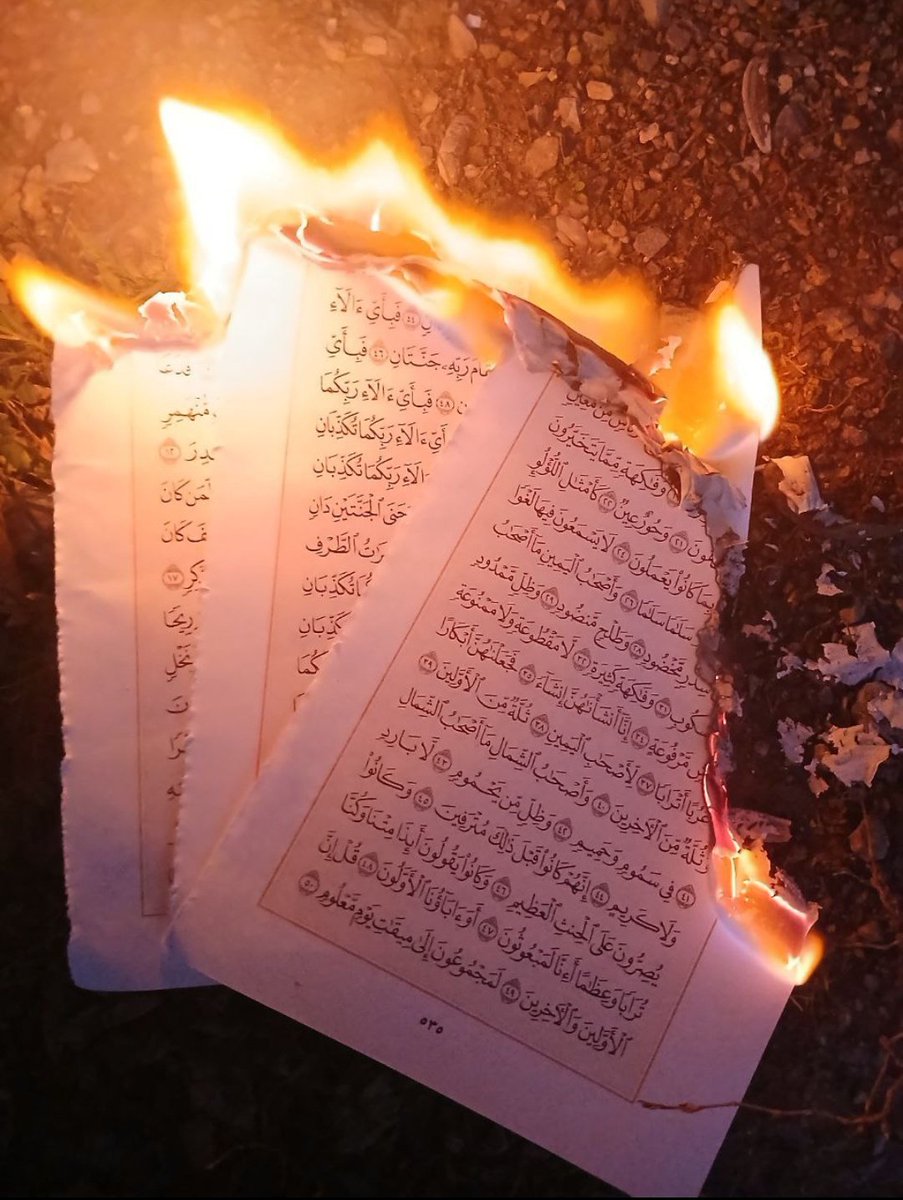 مِّن مَّعِينٍ
وَفَٰكِهَةٍ مِّمَّا يَتَخَيَّرُونَ
٢١ وَحُورٌ عِينٌ ٢٢ كَأَمْثَٰلِ ٱللُّؤْلُؤِ
بِمَا كَانُوا۟ يَعْمَلُونَ ٢٤ لَا يَسْمَعُونَ فِيهَا لَغْوًا
سَلَٰمًا سَلَٰمًا ٢٦ وَأَصْحَٰبُ ٱلْيَمِينِ مَآ أَصْحَٰبُ
سِدْرٍ مَّخْضُودٍ ٢٨ وَطَلْحٍ مَّنضُودٍ ٢٩ وَظِلٍّ مَّمْدُودٍ
٣١ وَفَٰكِهَةٍ كَثِيرَةٍ ٣٢ لَّا مَقْطُوعَةٍ وَلَا مَمْنُوعَةٍ
مَّرْفُوعَةٍ ٣٤ إِنَّآ أَنشَأْنَٰهُنَّ إِنشَآءً ٣٥ فَجَعَلْنَٰهُنَّ أَبْكَارًا
عُرُبًا أَتْرَابًا ٣٧ لِّأَصْحَٰبِ ٱلْيَمِينِ ٣٨ ثُلَّةٌ مِّنَ ٱلْأَوَّلِينَ ٣٩
وَثُلَّةٌ مِّنَ ٱلْءَاخِرِينَ ٤٠ وَأَصْحَٰبُ ٱلشِّمَالِ مَآ أَصْحَٰبُ ٱلشِّمَالِ
٤١ فِى سَمُومٍ وَحَمِيمٍ ٤٢ وَظِلٍّ مِّن يَحْمُومٍ ٤٣ لَّا بَارِدٍ
وَلَا كَرِيمٍ ٤٤ إِنَّهُمْ كَانُوا۟ قَبْلَ ذَٰلِكَ مُتْرَفِينَ ٤٥ وَكَانُوا۟
يُصِرُّونَ عَلَى ٱلْحِنثِ ٱلْعَظِيمِ ٤٦ وَكَانُوا۟ يَقُولُونَ أَئِذَا مِتْنَا وَكُنَّا
تُرَابًا وَعِظَٰمًا أَءِنَّا لَمَبْعُوثُونَ ٤٧ أَوَءَابَآؤُنَا ٱلْأَوَّلُونَ ٤٨ قُلْ إِنَّ
ٱلْأَوَّلِينَ وَٱلْءَاخِرِينَ ٤٩ لَمَجْمُوعُونَ إِلَىٰ مِيقَٰتِ يَوْمٍ مَّعْلُومٍ ٥٠
٥٣٥
فَبِأَىِّ ءَالَآءِ
رَبِّهِۦ جَنَّتَانِ ٤٦ فَبِأَىِّ
٤٨ فَبِأَىِّ ءَالَآءِ رَبِّكُمَا
ءَالَآءِ رَبِّكُمَا تُكَذِّبَانِ
رَبِّكُمَا تُكَذِّبَانِ
ٱلْجَنَّتَيْنِ دَانٍ
ٱلطَّرْفِ
تُكَذِّبَانِ
مُّنْهَمِرٍ
١٣
كَانَ
كَانَ
١٧